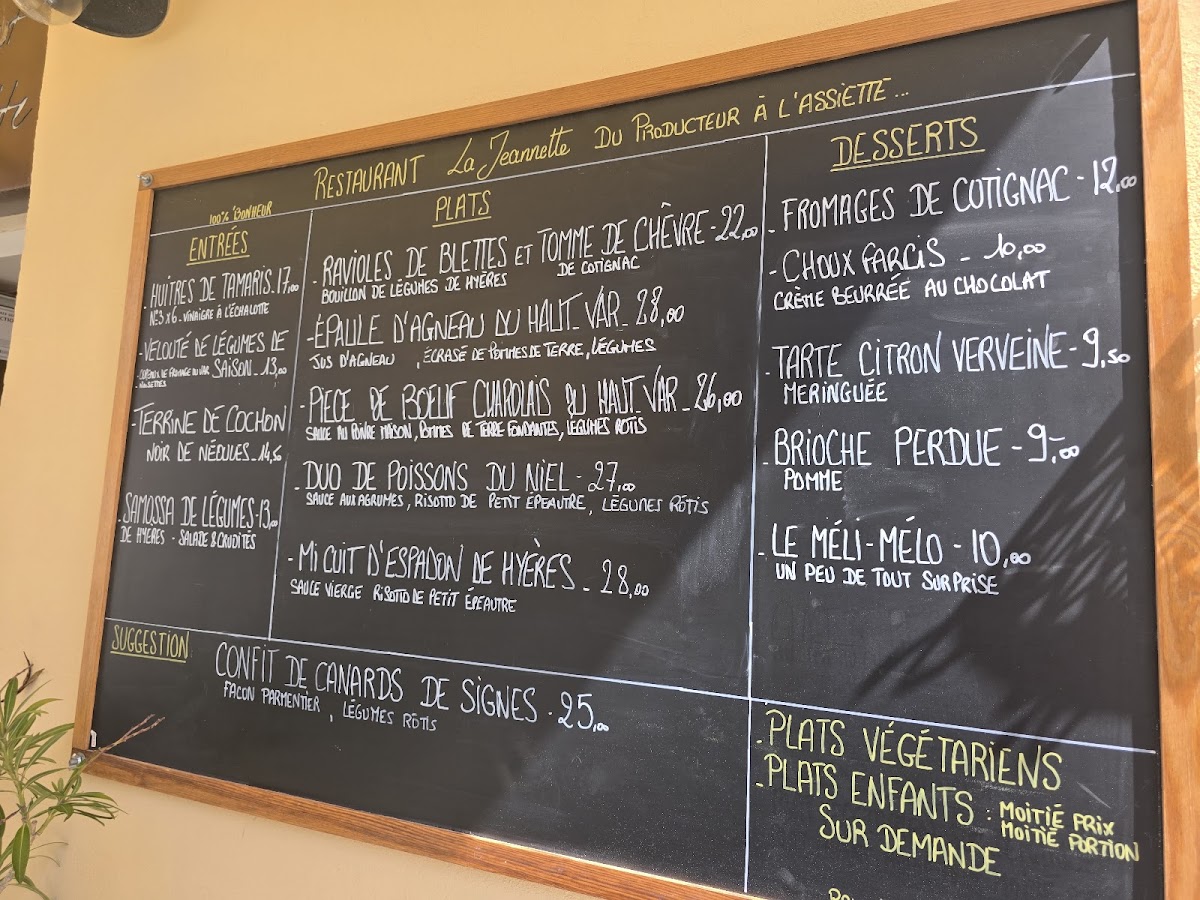 RESTAURANT La Jeannette DU PRODUCTEUR À L'ASSIETTE...
100% BONHEUR
ENTRÉES
- HUÎTRES DE TAMARIS. 17,00
N°3 x 6 - VINAIGRE À L'ÉCHALOTTE
- VELOUTÉ DE LÉGUMES DE
SAISON - 13,00
NOISETTES
- TERRINE DE COCHON
NOIR DE NÉOULES - 14,50
- SAMOSSA DE LÉGUMES - 13,00
DE HYÈRES - SALADE & CRUDITÉS
PLATS
- RAVIOLES DE BLETTES ET TOMME DE CHÈVRE - 22,00
BOUILLON DE LÉGUMES DE HYÈRES DE COTIGNAC
- ÉPAULE D'AGNEAU DU HAUT-VAR - 28,00
JUS D'AGNEAU , ÉCRASÉ DE POMMES DE TERRE, LÉGUMES
- PIECE DE BŒUF CHAROLAIS DU HAUT-VAR - 26,00
SAUCE AU POIVRE MAISON, POMMES DE TERRE FONDANTES, LÉGUMES RÔTIS
- DUO DE POISSONS DU NIEL - 27,00
SAUCE AUX AGRUMES, RISOTTO DE PETIT ÉPEAUTRE, LÉGUMES RÔTIS
- MI CUIT D'ESPADON DE HYÈRES - 28,00
SAUCE VIERGE RISOTTO DE PETIT ÉPEAUTRE
DESSERTS
- FROMAGES DE COTIGNAC - 12,00
- CHOUX FARCIS - 10,00
CRÈME BEURRÉE AU CHOCOLAT
- TARTE CITRON VERVEINE - 9,50
MERINGUÉE
- BRIOCHE PERDUE - 9,00
POMME
- LE MÉLI-MÉLO - 10,00
UN PEU DE TOUT SURPRISE
SUGGESTION
CONFIT DE CANARDS DE SIGNES - 25,00
FACON PARMENTIER, LÉGUMES RÔTIS
- PLATS VÉGÉTARIENS
- PLATS ENFANTS : MOITIÉ PRIX
MOITIÉ PORTION
SUR DEMANDE